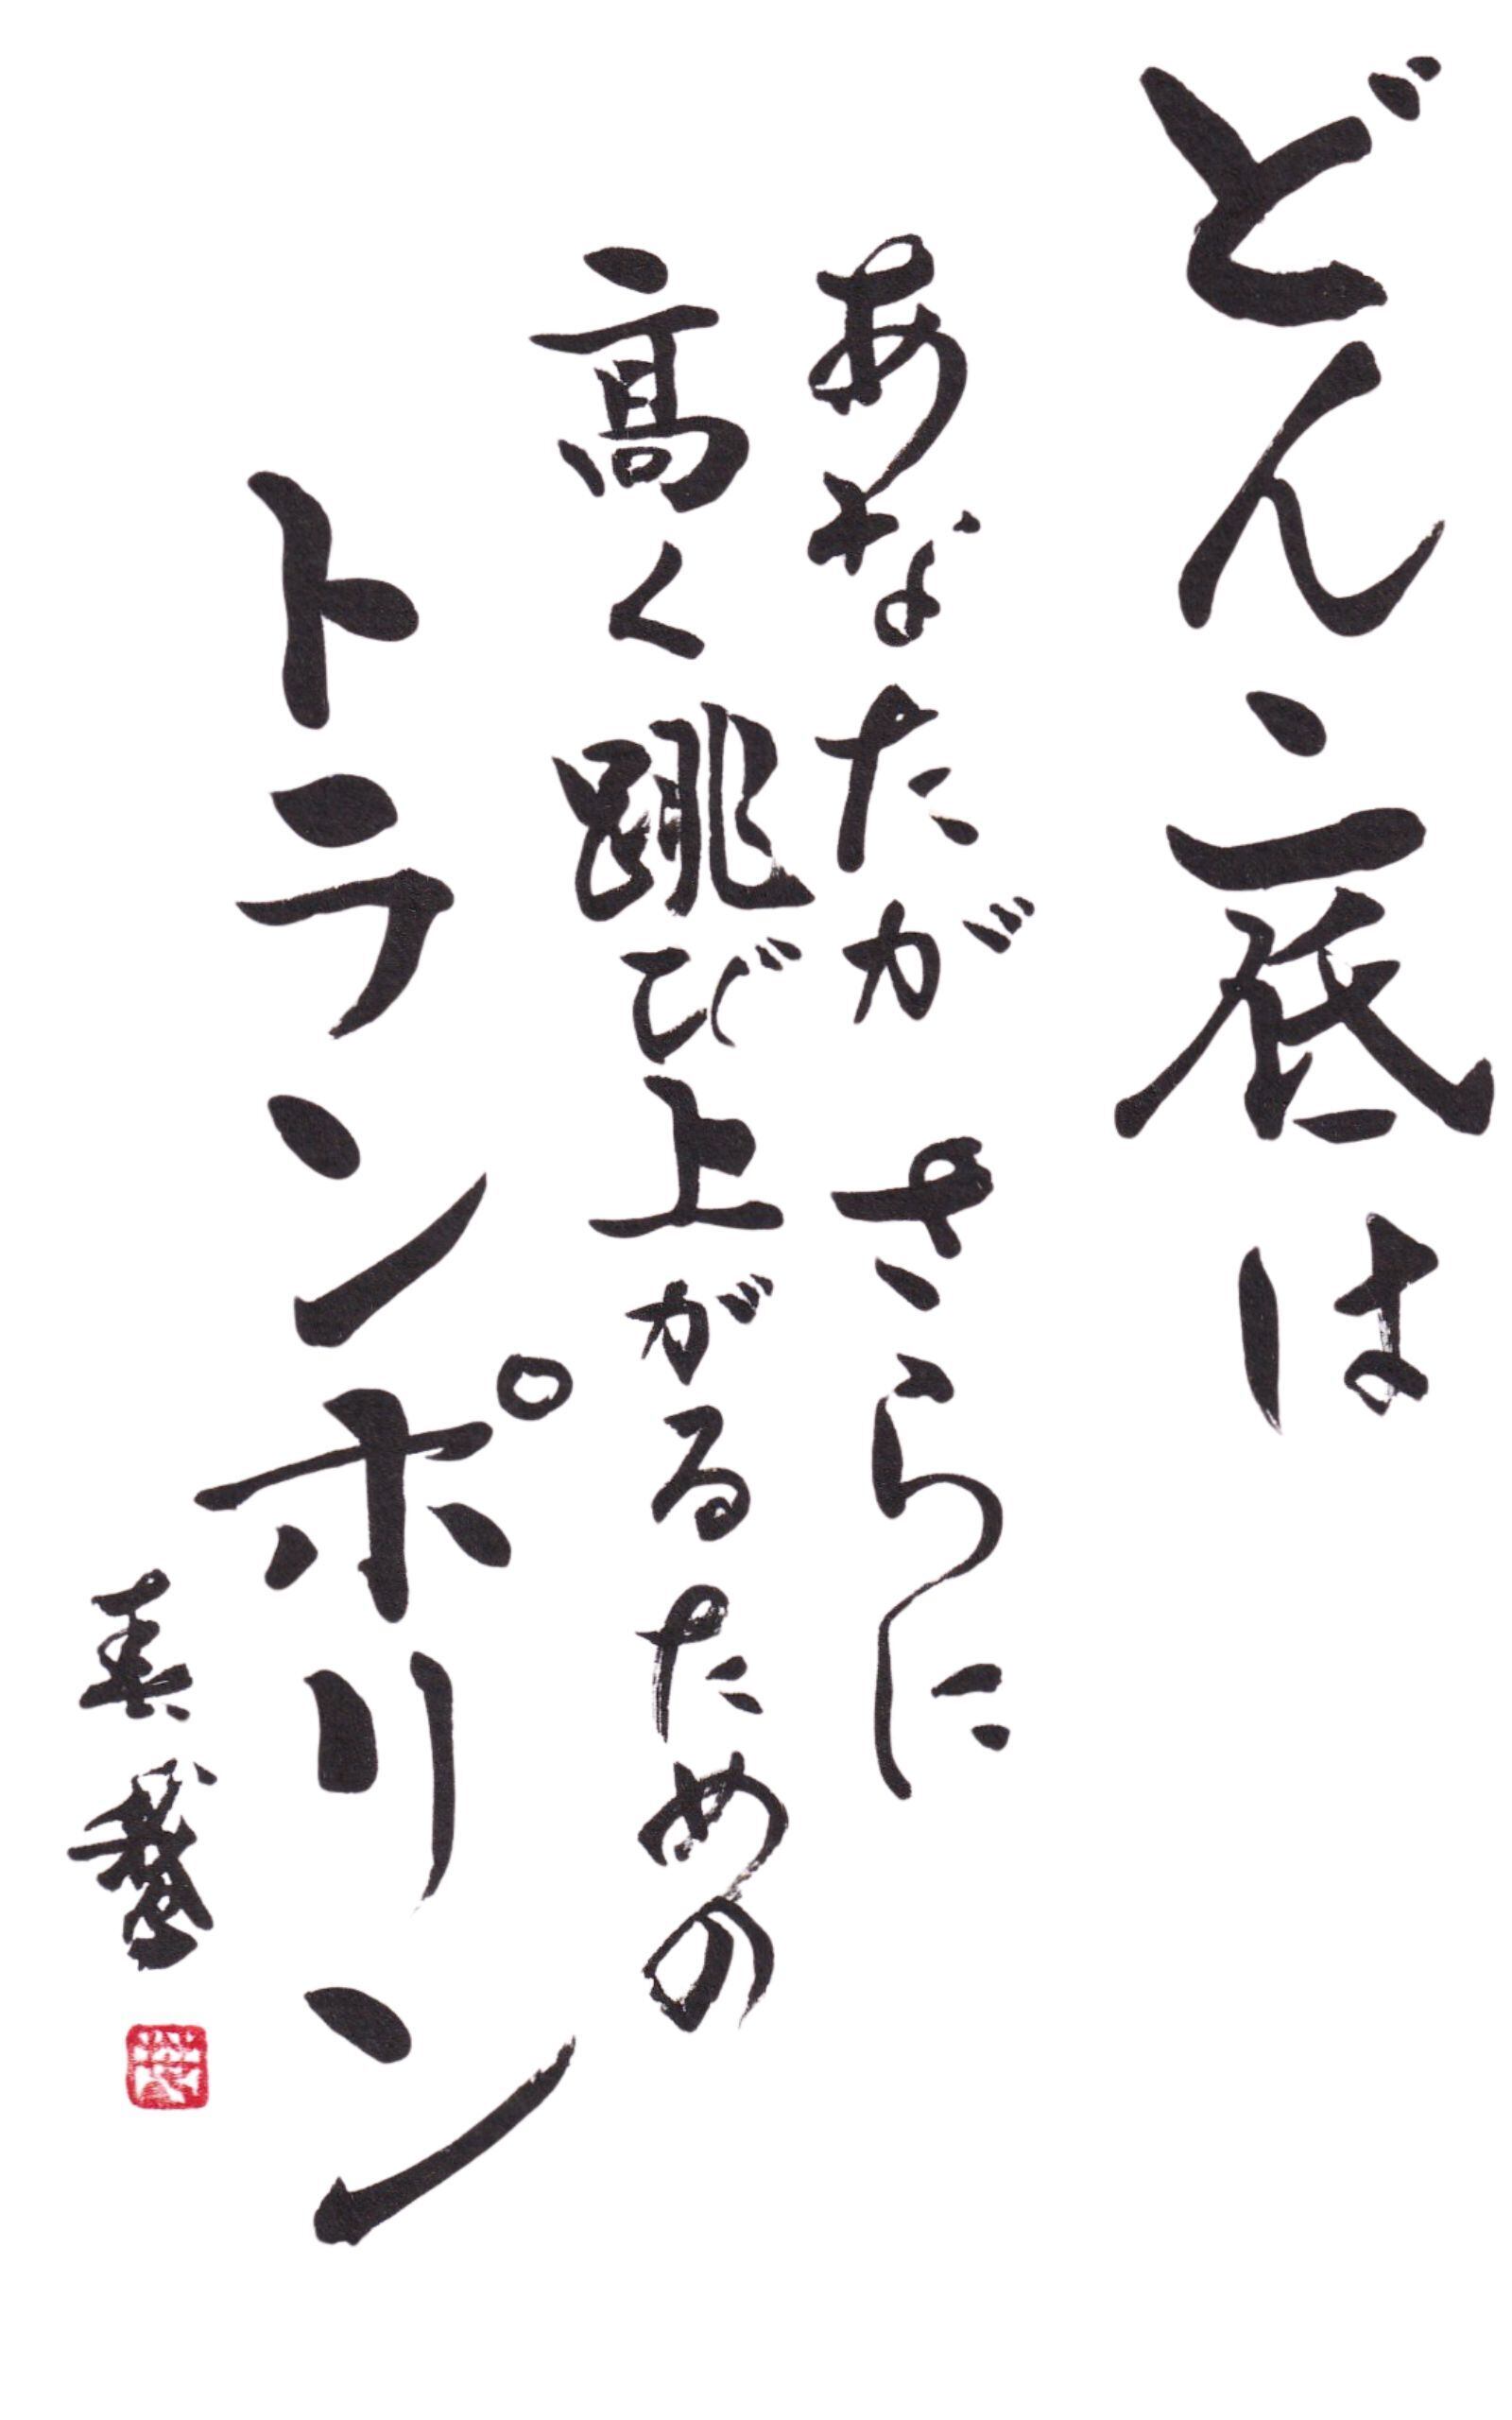 どん底は
あなたが さらに
高く跳び上がるための
トランポリン